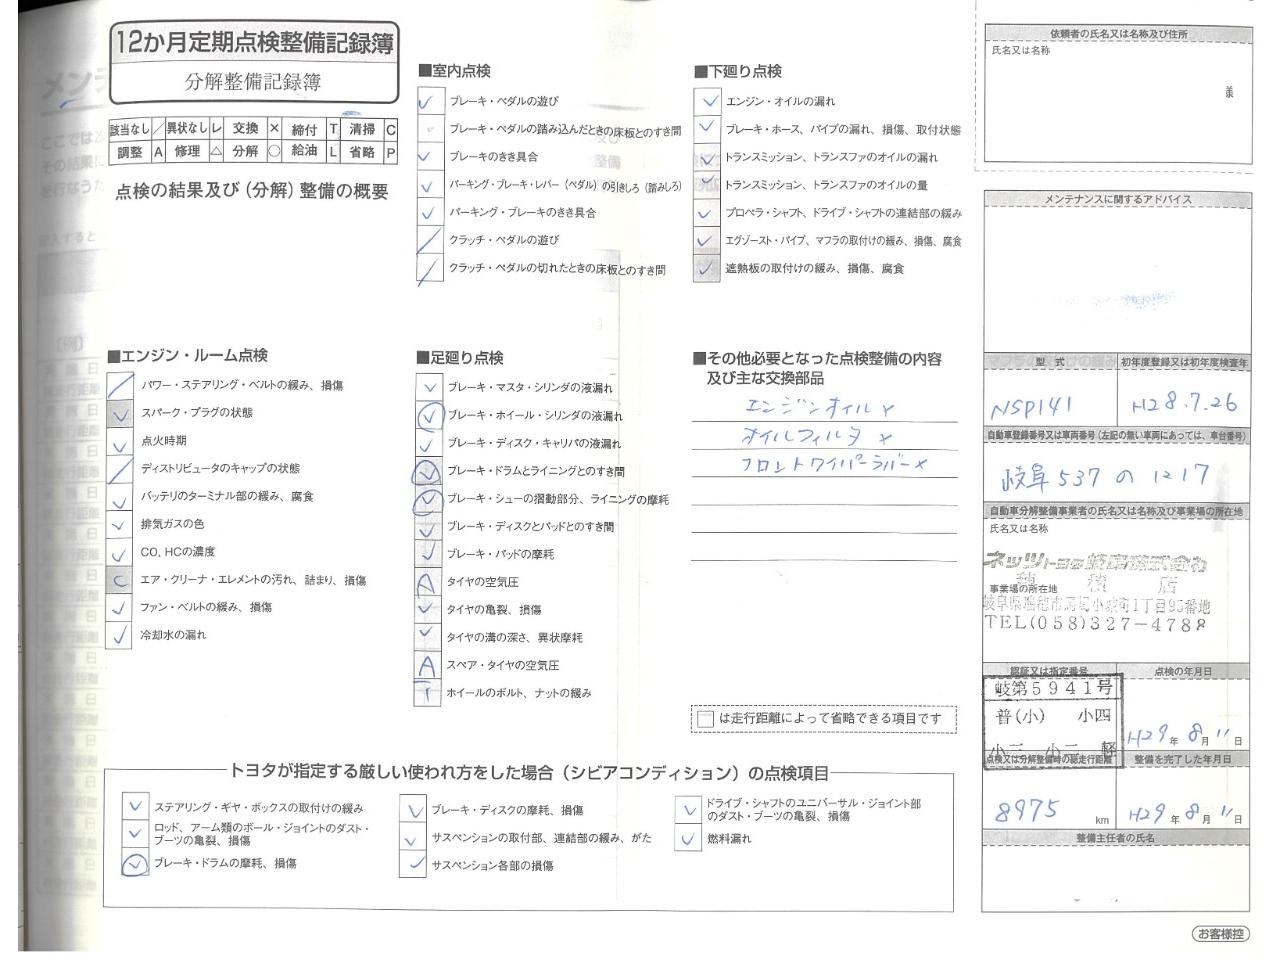 12か月定期点検整備記録簿
分解整備記録簿
該当なし ／ 異状なし レ 交換 × 締付 T 清掃 C
調整 A 修理 △ 分解 ○ 給油 L 省略 P
点検の結果及び（分解）整備の概要
■室内点検
ブレーキ・ペダルの遊び
ブレーキ・ペダルの踏み込んだときの床板とのすき間
ブレーキのきき具合
パーキング・ブレーキ・レバー（ペダル）の引きしろ（踏みしろ）
パーキング・ブレーキのきき具合
クラッチ・ペダルの遊び
クラッチ・ペダルの切れたときの床板とのすき間
■下廻り点検
エンジン・オイルの漏れ
ブレーキ・ホース、パイプの漏れ、損傷、取付状態
トランスミッション、トランスファのオイルの漏れ
トランスミッション、トランスファのオイルの量
プロペラ・シャフト、ドライブ・シャフトの連結部の緩み
エグゾースト・パイプ、マフラの取付けの緩み、損傷、腐食
遮熱板の取付けの緩み、損傷、腐食
■エンジン・ルーム点検
パワー・ステアリング・ベルトの緩み、損傷
スパーク・プラグの状態
点火時期
ディストリビュータのキャップの状態
バッテリのターミナル部の緩み、腐食
排気ガスの色
CO、HCの濃度
C エア・クリーナ・エレメントの汚れ、詰まり、損傷
ファン・ベルトの緩み、損傷
冷却水の漏れ
■足廻り点検
ブレーキ・マスタ・シリンダの液漏れ
ブレーキ・ホイール・シリンダの液漏れ
ブレーキ・ディスク・キャリパの液漏れ
ブレーキ・ドラムとライニングとのすき間
ブレーキ・シューの摺動部分、ライニングの摩耗
ブレーキ・ディスクとパッドとのすき間
ブレーキ・パッドの摩耗
A タイヤの空気圧
タイヤの亀裂、損傷
タイヤの溝の深さ、異状摩耗
A スペア・タイヤの空気圧
T ホイールのボルト、ナットの緩み
■その他必要となった点検整備の内容
及び主な交換部品
エンジンオイル ×
オイルフィルタ ×
フロントワイパーラバー ×
は走行距離によって省略できる項目です
トヨタが指定する厳しい使われ方をした場合（シビアコンディション）の点検項目
ステアリング・ギヤ・ボックスの取付けの緩み
ロッド、アーム類のボール・ジョイントのダスト・
ブーツの亀裂、損傷
ブレーキ・ドラムの摩耗、損傷
ブレーキ・ディスクの摩耗、損傷
サスペンションの取付部、連結部の緩み、がた
サスペンション各部の損傷
ドライブ・シャフトのユニバーサル・ジョイント部
のダスト・ブーツの亀裂、損傷
燃料漏れ
依頼者の氏名又は名称及び住所
氏名又は名称
様
メンテナンスに関するアドバイス
型 式
初年度登録又は初年度検査年
NSP141
H28.7.26
自動車登録番号又は車両番号（左記の無い車両にあっては、車台番号）
岐阜 537 の 1217
自動車分解整備事業者の氏名又は名称及び事業場の所在地
氏名又は名称
ネッツトヨタ岐阜株式会社
穂積店
事業場の所在地
TEL(058)327-4788
認証又は指定番号
点検の年月日
岐第5941号
普(小) 小四
小三 小二 軽
H29年8月11日
点検又は分解整備時の総走行距離
整備を完了した年月日
8975 km
H29年8月11日
整備主任者の氏名
お客様控